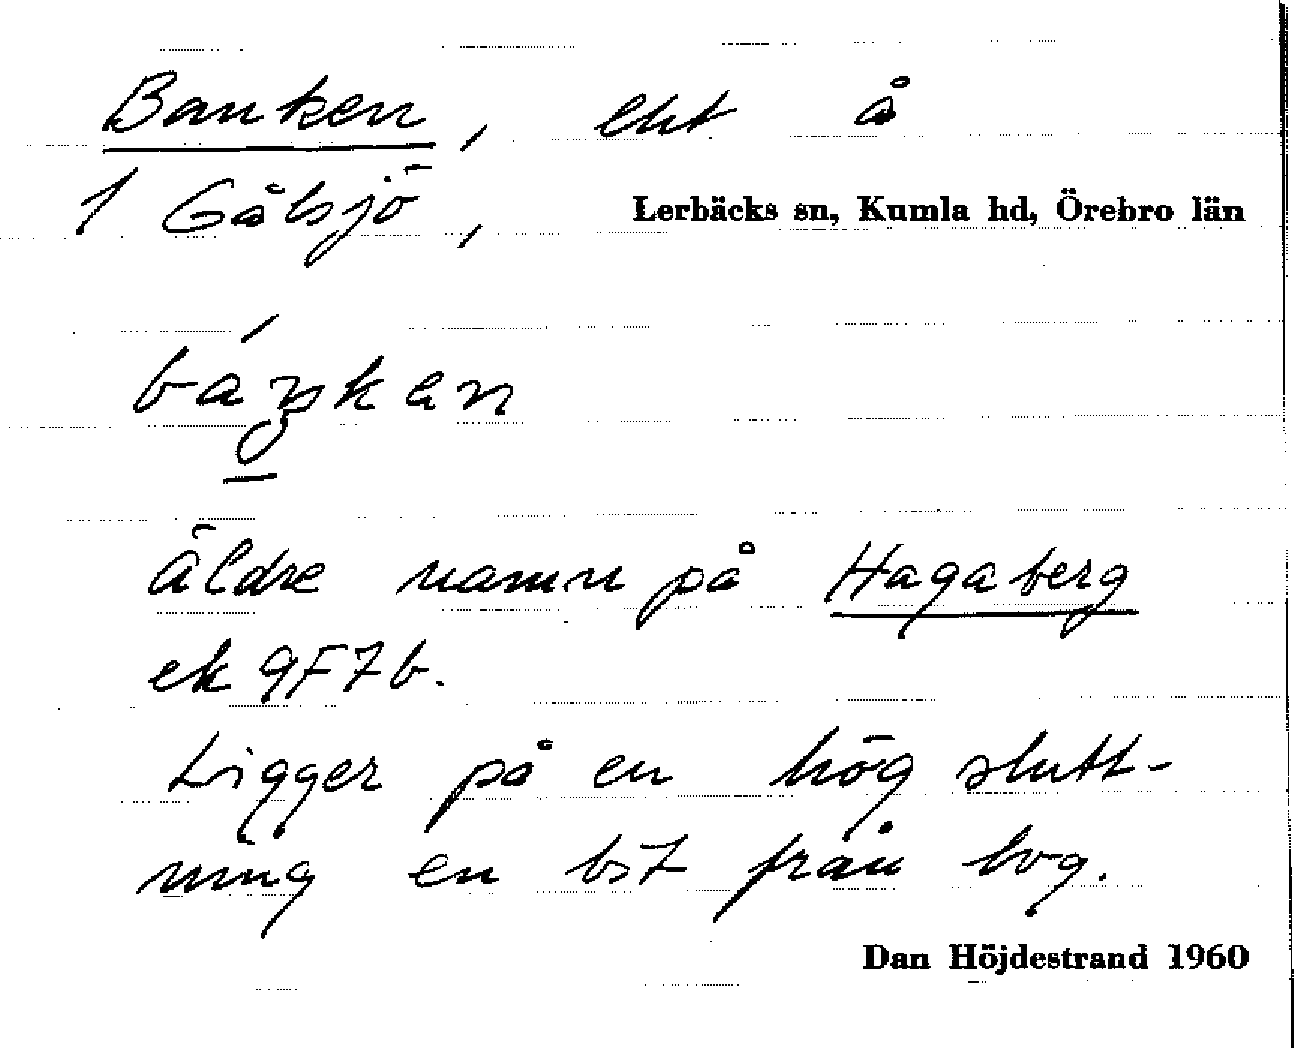 Banken, lht å
1 Gålsjö, Lerbäcks sn, Kumla hd, Örebro län
báŋkan
äldre namn på Hagaberg
ek 9F7b.
Ligger på en hög slutt-
ning en bit från bvg.
Dan Höjdestrand 1960